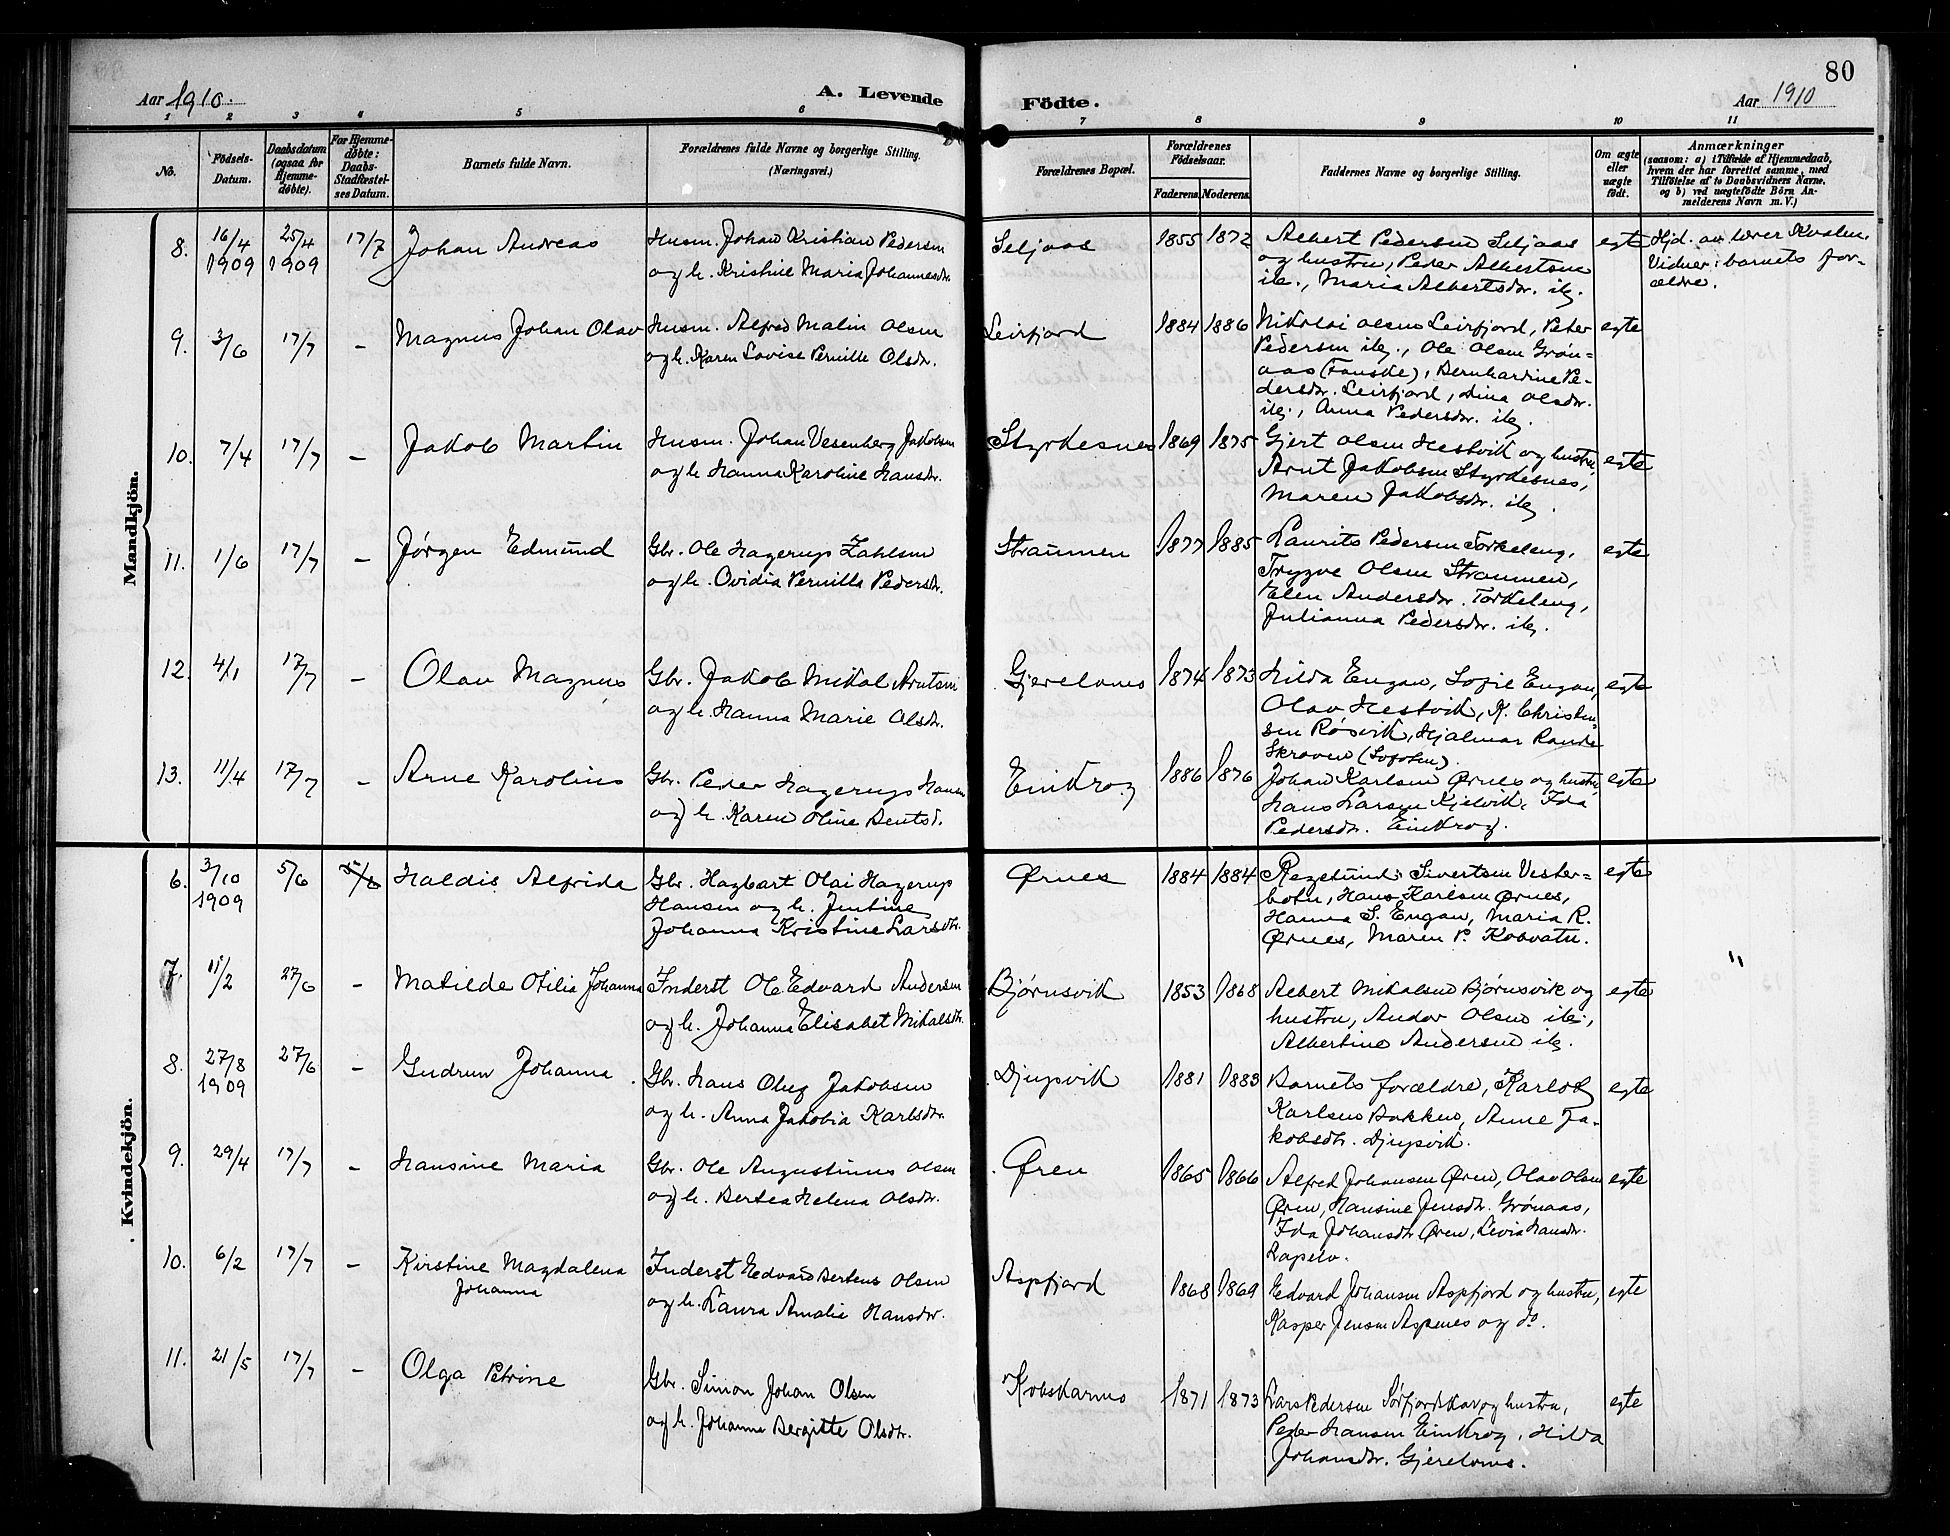 80
Aar 1910.
A. Levende
Födte.
Aar 1910
1 2 3 4 5 6 7 8 9 10 11
No.
Födsels-
Datum.
Daabsdatum
(ogsaa for
Hjemme-
döbte).
For Hjemme-
döbte:
Daabs-
Stadfæstel-
ses Datum.
Barnets fulde Navn.
Forældrenes fulde Navne og borgerlige Stilling.
(Næringsvei.)
Forældrenes Bopæl.
Forældrenes
Födselsaar.
Faderens.
Moderens.
Faddernes Navne og borgerlige Stilling.
Om ægte
eller
uægte
født.
Anmærkninger
(saasom: a) i Tilfælde af Hjemmedaab,
hvem der har forrettet samme, med
Tilföielse af to Daabsvidners Navne,
og b) ved uægtefödte Börn An-
melderens Navn m. V.)
Mandkjön.
8. 16/4 1909 25/4 1909 17/7 Johan Andreas
Husm. Johan Kristian Pedersen
og h. Kristine Maria Johannesdr.
Seljaas 1855 1872
Albert Pedersen Seljaas
og hustru, Peder Albertsen
ib., Maria Albertsdr. ib.
egte
Hjd. av lærer Kvalm.
Vidner: barnets for-
ældre.
9. 3/6 17/7 - Magnus Johan Olav
Husm. Alfred Malin Olsen
og h. Karen Lovise Pernille Olsdr.
Leirfjord 1884 1886
Nikolai Olsen Leirfjord, Peter
Pedersen ib., Ole Olsen Grøn-
aas (Fauske), Bernhardine Pe-
dersdr. Leirfjord, Dina Olsdr.
ib., Anna Pedersdr. ib.
egte
10. 7/4 17/7 - Jakob Martin
Husm. Johan Vesenberg Jakobsen
og h. Hanna Karoline Hansdr.
Styrkesnes 1869 1875
Gjert Olsen Hestvik og hustru,
Arnt Jakobsen Styrkesnes,
Maren Jakobsdr. ib.
egte
11. 1/6 17/7 - Jørgen Edmund
Gbr. Ole Hagerup Zahlsen
og h. Ovidia Pernille Pedersdr.
Straumen 1877 1885
Laurits Pedersen Torkeleng,
Trygve Olsen Straumen,
Elen Andersdr. Torkeleng,
Julianna Pedersdr. ib.
egte
12. 4/1 17/7 - Olav Magnus
Gbr. Jakob Mikal Arntsen
og h. Hanna Marie Olsdr.
Gjerelvnes 1874 1873
Hilda Engan, Sofie Engan,
Olav Hestvik, K. Christen-
sen Røsvik, Hjalmar Rande
Skroven (Lofoten).
egte
13. 11/4 17/7 - Arne Karolius
Gbr. Peder Hagerup Hansen
og h. Karen Oline Bentsd.
Einkrog 1886 1876
Johan Karlsen Ørnes og hustru,
Hans Larsen Kjelvik, Ida
Pedersdr. Einkrog.
egte
Kvindekjön.
6. 3/10 1909 5/6 5/6 Haldis Alfrida
Gbr. Hagbart Olai Hagerup
Hansen og h. Jentine
Johanna Kristine Larsdtr.
Ørnes 1884 1884
Sivertsen Vester-
botn, Hans Karlsen Ørnes,
Hanna S. Engan, Maria R.
Ørnes, Maren P. Kobvatn.
egte
7. 11/2 27/6 - Matilde Otilia Johanna
Inderst Ole Edvard Andersen
og h. Johanna Elisabet Mikalsdtr.
Bjørnsvik 1853 1868
Albert Mikalsen Bjørnsvik og
hustru, Andor Olsen ib.,
Albertine Andersen ib.
egte
8. 27/8 1909 27/6 - Gudrun Johanna
Gbr. Hans Oluf Jakobsen
og h. Anna Jakobia Karlsdtr.
Djupvik 1881 1883
Barnets forældre, Karlot
Karlsen Bakken, Anne Ja-
kobsdtr. Djupvik.
egte
9. 29/4 17/7 - Hansine Maria
Gbr. Ole Augustinus Olsen
og h. Bertea Helena Olsdtr.
Øren 1865 1866
Alfred Johansen Øren, Olav Olsen
Øren, Hansine Jensdtr. Grønaas,
Ida Johansdtr. Øren, Levia Hansdtr.
egte
10. 6/2 17/7 - Kirstine Magdalena
Johanna
Inderst Edvard Bertens Olsen
og h. Laura Amalie Hansdr.
Aspfjord 1868 1869
Edvard Johansen Aspfjord og hustru,
Kasper Jensen Aspenes og do.
egte
11. 21/5 17/7 - Olga Petrine
Gbr. Simon Johan Olsen
og h. Johanna Bergitte Olsdtr.
Kobskarmo 1871 1873
Lars Pedersen Sørfjordskar og hustru,
Peder Hansen Einkrog, Hilda
Johansdtr. Gjerelvnes.
egte